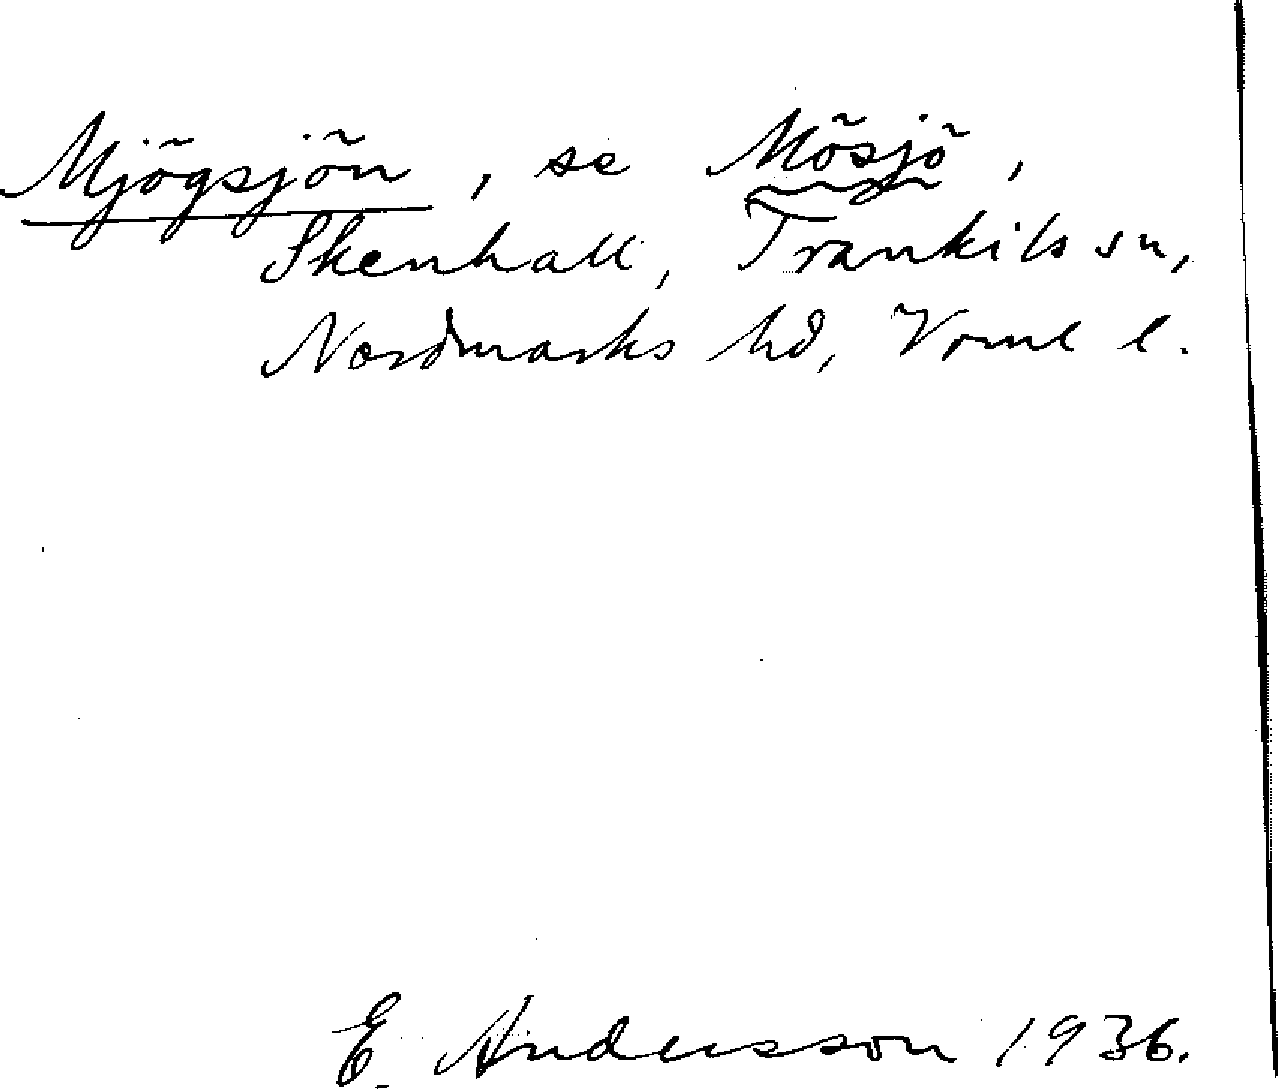 Mjögsjön, se Mösjö,
Skenhall, Trankils sn,
Nordmarks hd, Vrml l.
E. Andersson 1936.